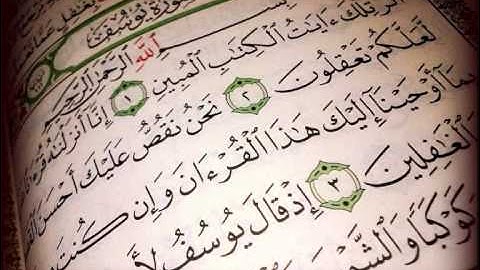 سورة يوسف
بسم الله الرحمن الرحيم
الر تلك ءايت الكتب المبين ١ إنا أنزلنه
لعلكم تعقلون ٢ نحن نقص عليك أحسن
بما أوحينا إليك هذا القرءان وإن كنت
الغفلين ٣ إذ قال يوسف
كوكبا والشمس